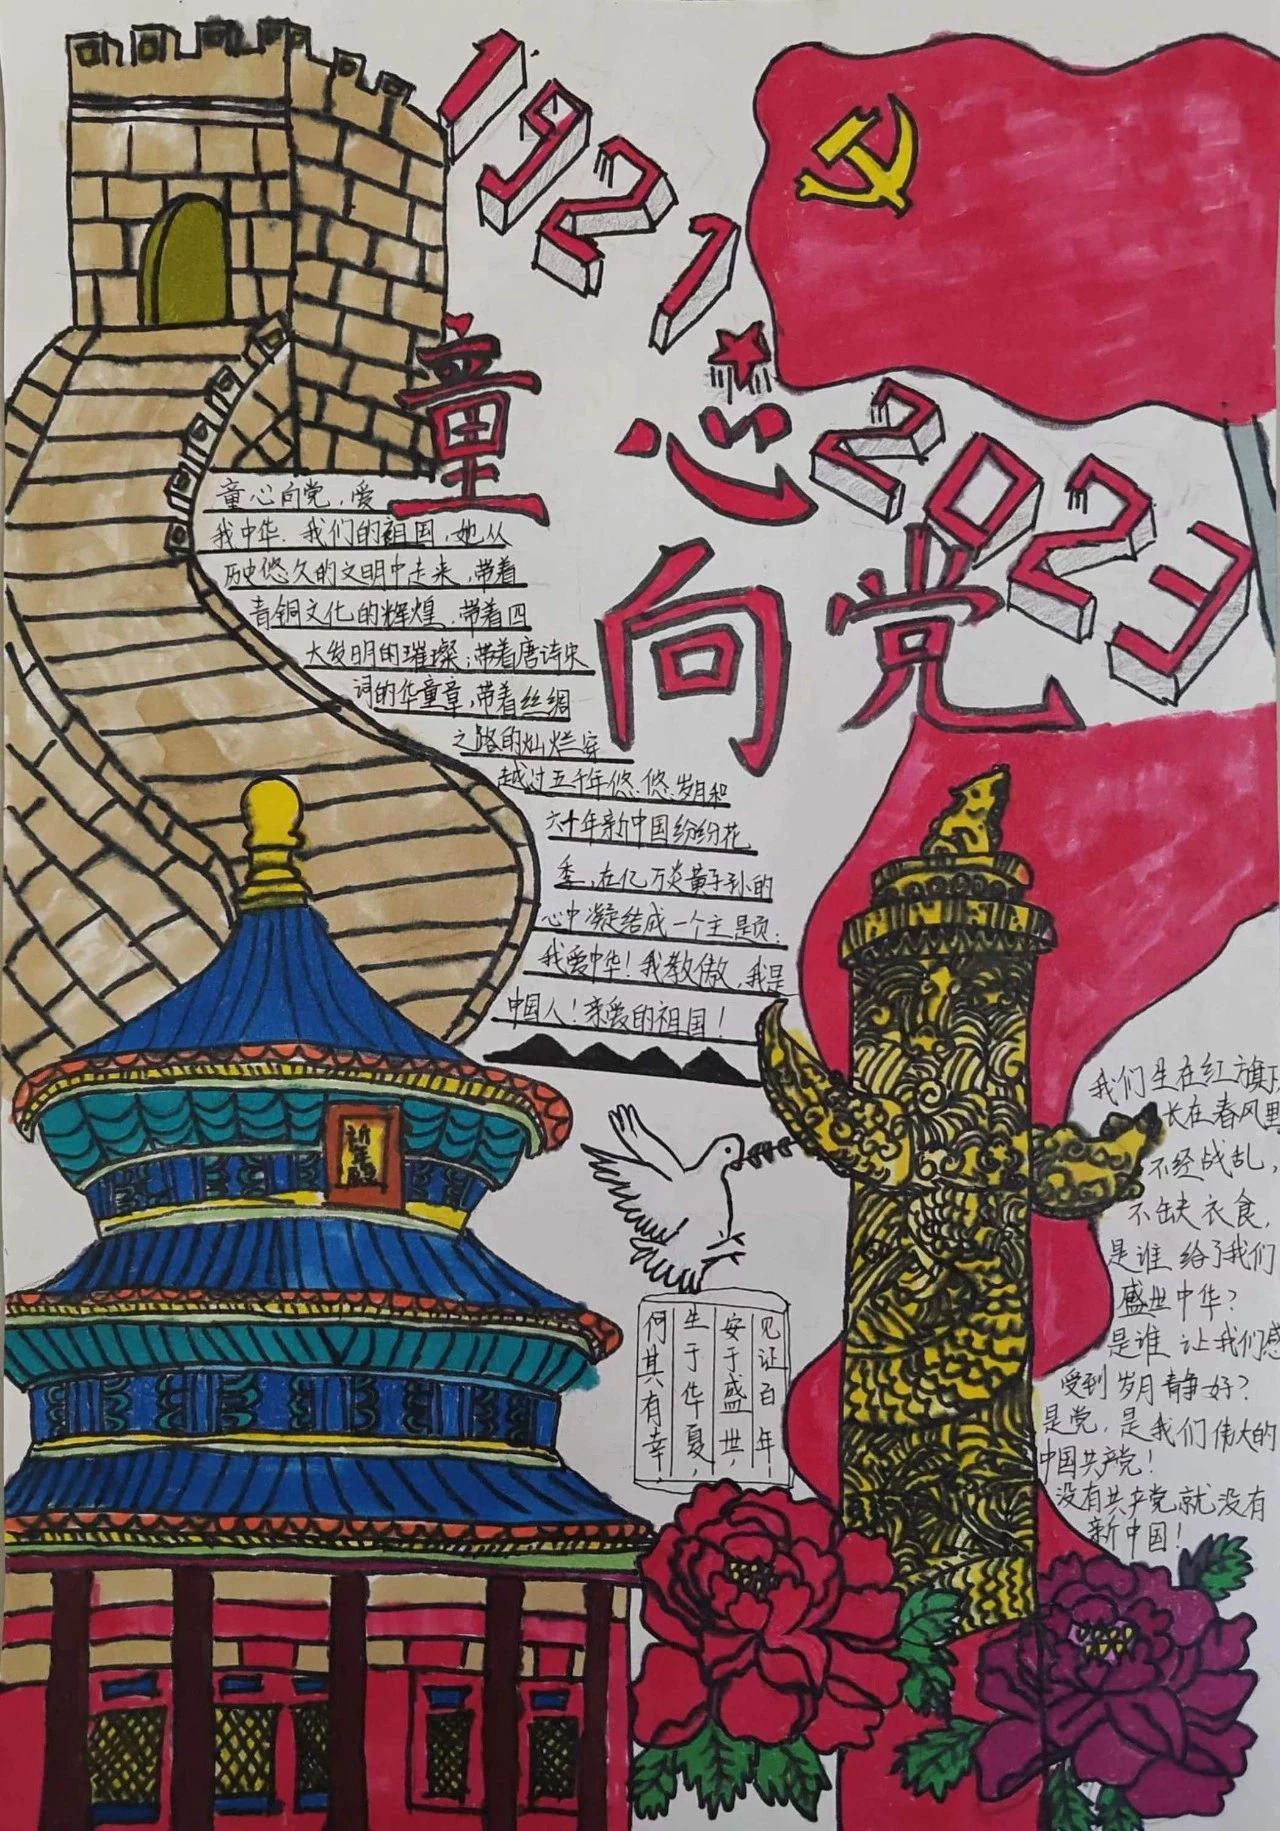 1921
2023
童心
向党
童心向党，爱
我中华．我们的祖国，她从
历史悠久的文明中走来，带着
青铜文化的辉煌，带着四
大发明的璀璨；带着唐诗宋
词的华童章，带着丝绸
之路的灿烂穿
越过五千年悠悠岁月和
六十年新中国纷纷花
季，在亿万炎黄子孙的
心中凝结成一个主题：
我爱中华！我教傲，我是
中国人！亲爱的祖国！
祈年殿
见证百年！
安于盛世，
生于华夏，
何其有幸，
我们生在红旗下
长在春风里
不经战乱，
不缺衣食，
是谁给了我们
盛世中华？
是谁让我们感
受到岁月静好？
是党，是我们伟大的
中国共产党！
没有共产党就没有
新中国！